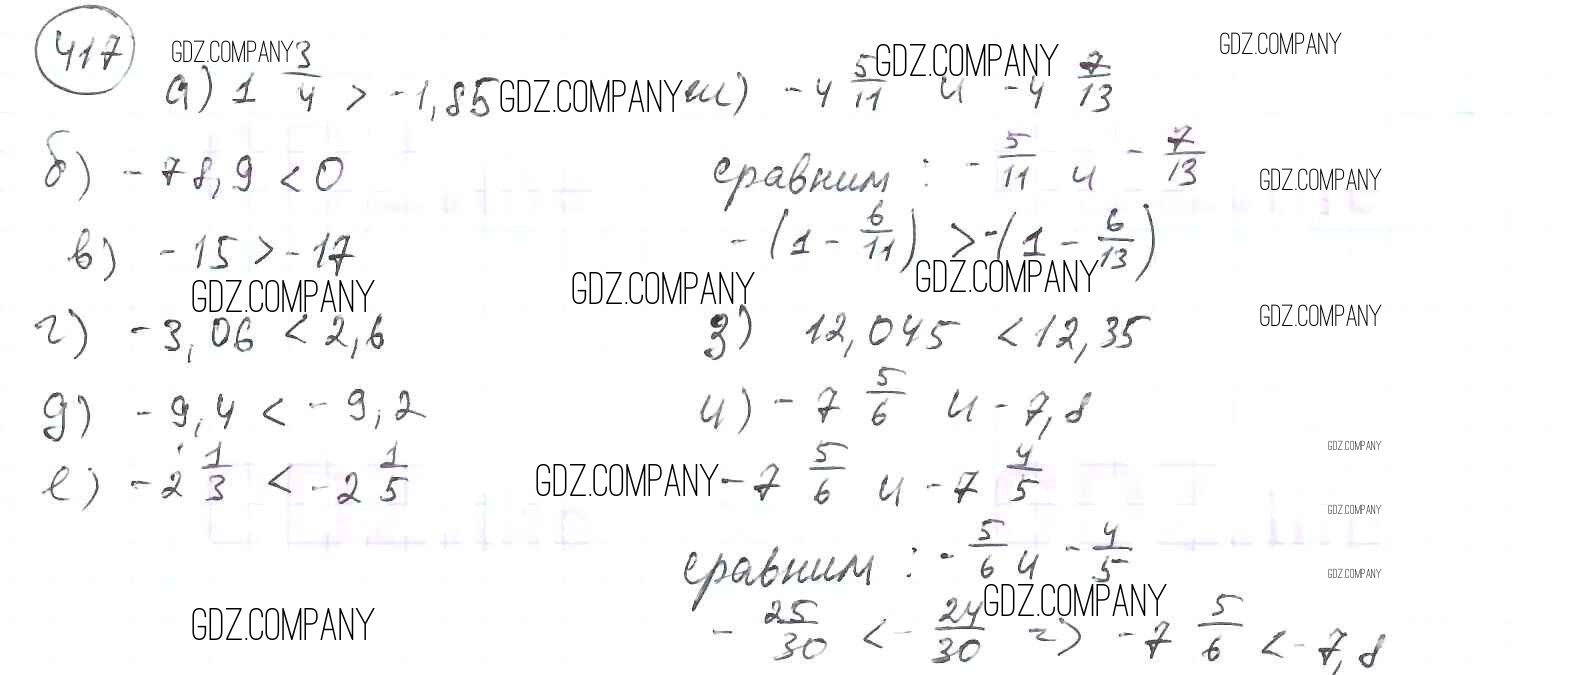 417
GDZ.COMPANY
а) 1 3/4 > -1,85
GDZ.COMPANY
б) -78,9 < 0
в) -15 > -17
GDZ.COMPANY
г) -3,06 < 2,6
д) -9,4 < -9,2
е) -2 1/3 < -2 1/5
GDZ.COMPANY
GDZ.COMPANY
GDZ.COMPANY
ж) -4 5/11 и -4 7/13
GDZ.COMPANY
сравним : -5/11 и -7/13
GDZ.COMPANY
-(1 - 6/11) > -(1 - 6/13)
GDZ.COMPANY
GDZ.COMPANY
з) 12,045 < 12,35
GDZ.COMPANY
и) -7 5/6 и -7,8
GDZ.COMPANY
-7 5/6 и -7 4/5
GDZ.COMPANY
сравним : -5/6 и -4/5
GDZ.COMPANY
GDZ.COMPANY
-25/30 < -24/30 => -7 5/6 < -7,8